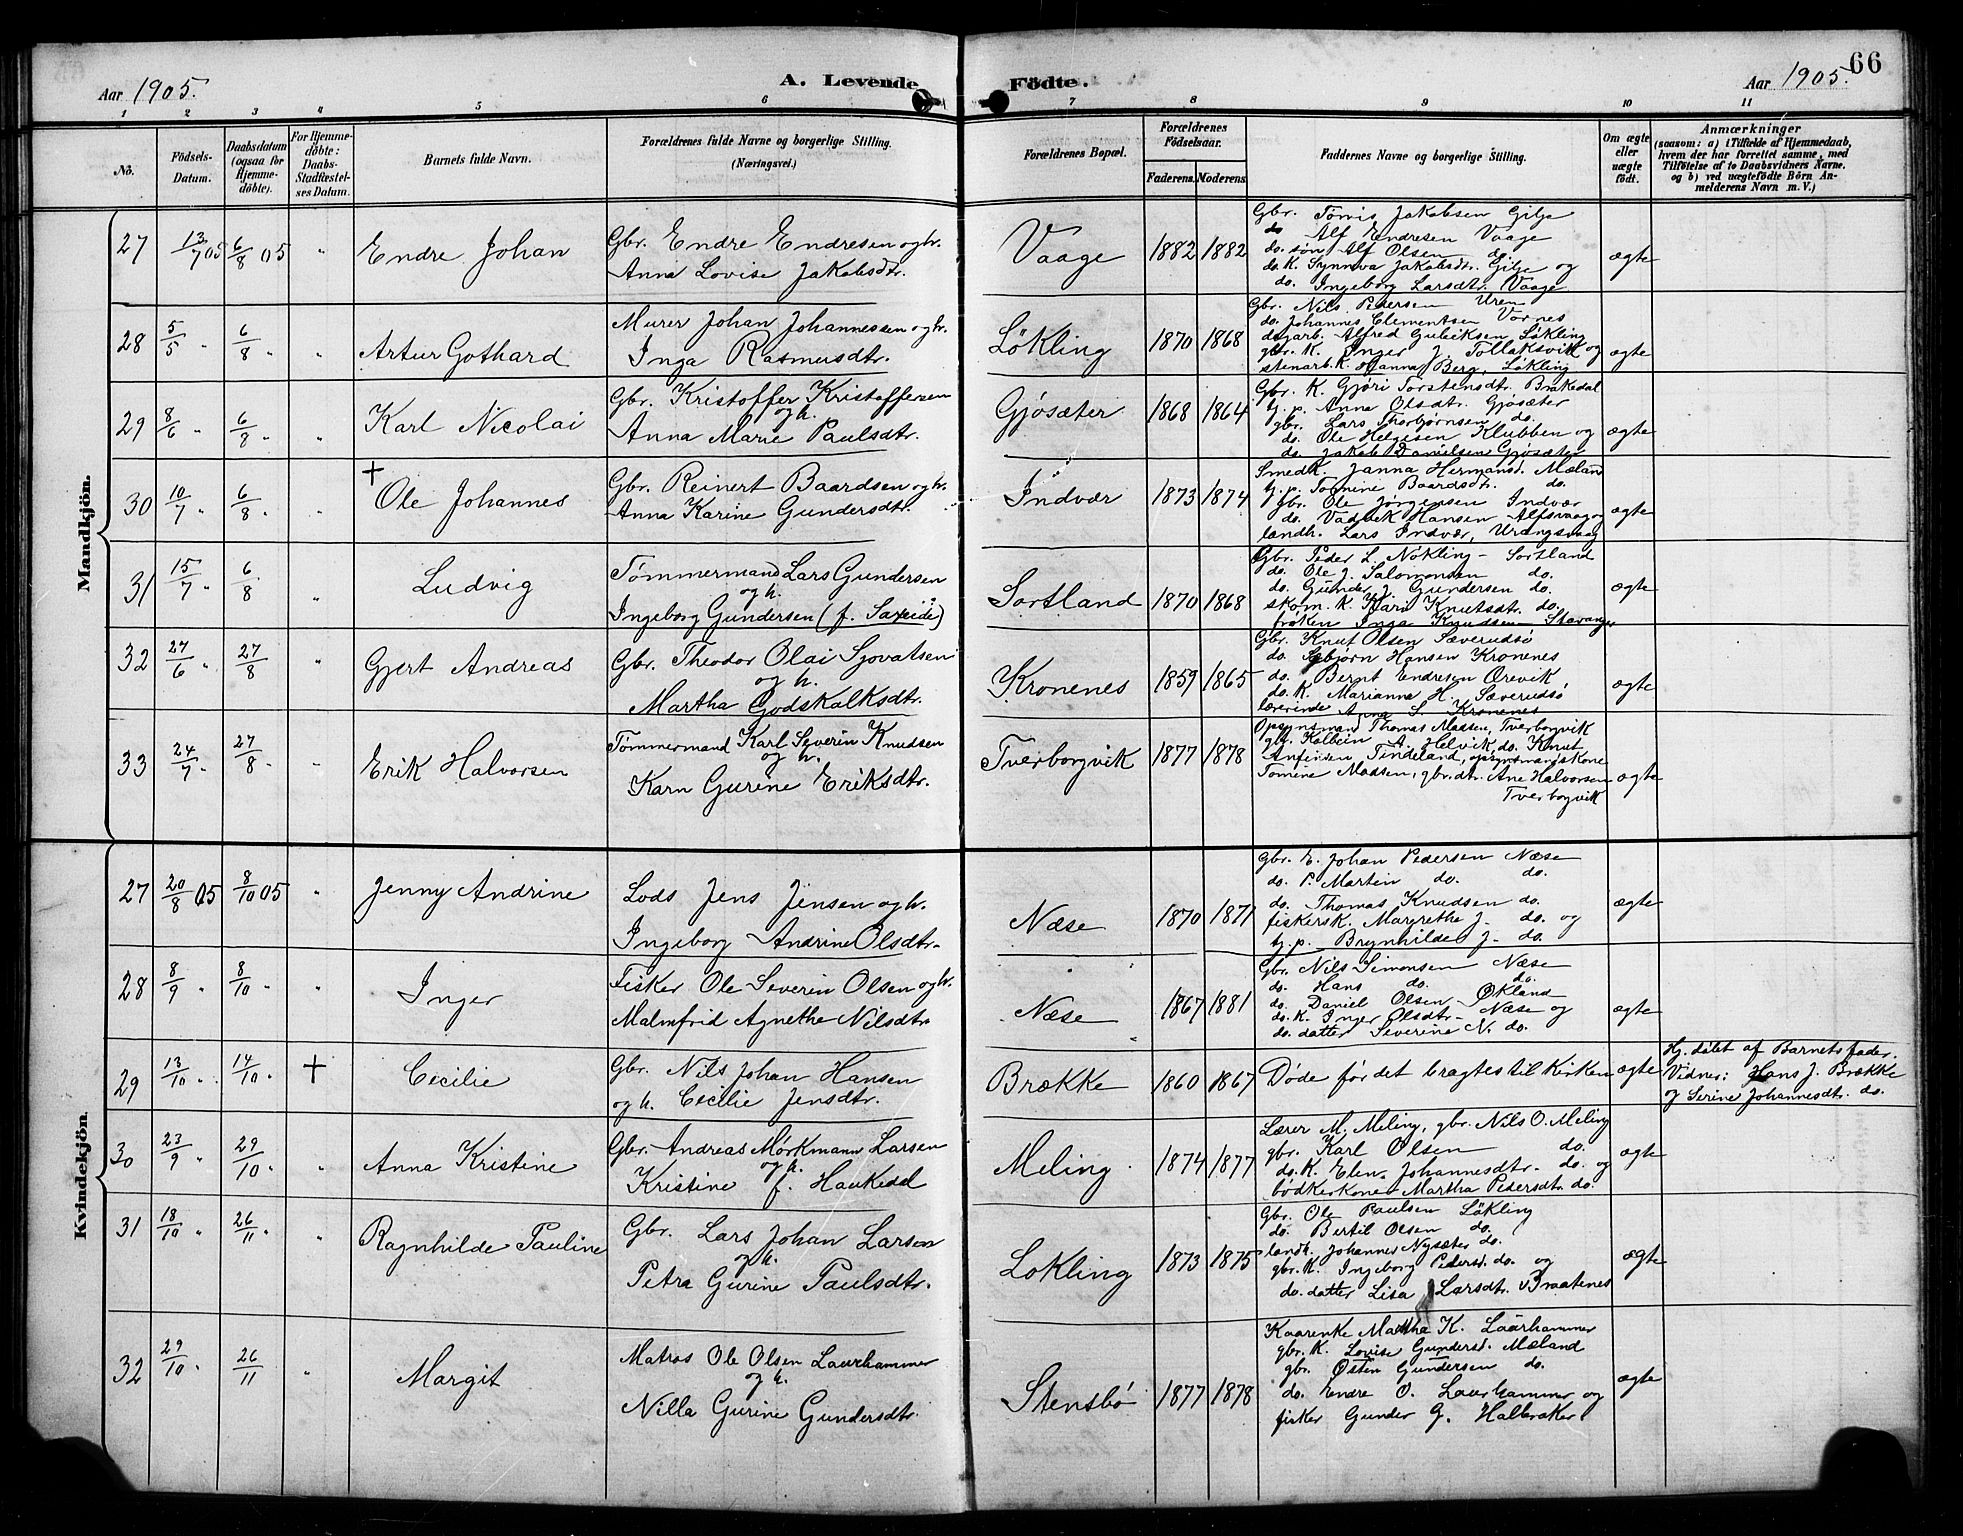 66
Aar 1905.
A. Levende
Födte.
Aar 1905.
1 2 3 4 5 6 7 8 9 10 11
No.
Födsels-
Datum.
Daabsdatum
(ogsaa for
Hjemme-
döbte).
For Hjemme-
döbte:
Daabs-
Stadfæstel-
ses Datum.
Barnets fulde Navn.
Forældrenes fulde Navne og borgerlige Stilling.
(Næringsvei.)
Forældrenes Bopæl.
Forældrenes
Födselsaar.
Faderens. Moderens.
Faddernes Navne og borgerlige Stilling.
Om ægte
eller
uægte
født.
Anmærkninger
(saasom: a) i Tilfælde af Hjemmedaab,
hvem der har forrettet samme, med
Tilföielse af to Daabsvidners Navne.
og b) ved uægtefödte Börn An-
melderens Navn m. V.)
Mandkjön.
27 13/7 05 6/8 05 " Endre Johan
Gbr. Endre Endresen og h.
Anna Lovise Jakobsdtr.
Vaage 1882 1882
Gbr. Tømis Jakobsen Gilje
do Alf Endresen Vaage
do. søn Alf Olsen do.
do. K. Synnva Jakobsdtr. Gilje og
do. Ingeborg Larsdtr. Vaage
ægte
28 5/5 " 6/8 " " Artur Gothard
Murer Johan Johannessen og h.
Inga Rasmusdtr.
Løkling 1870 1868
Gbr. Nils Pedersen Uren
do. Johannes Clementsen Vornes
dagarb. Alfred Gulaiksen Løkling
gbr. K. Inger J. Tollaksvik og
stenarb. K. Hanna Berg, Løkling
ægte
29 8/6 " 6/8 " " Karl Nicolai
Gbr. Kristoffer Kristoffersen
og h.
Anna Marie Paulsdtr.
Gjøsæter 1868 1864
Gbr. K. Gjøri Torstensdtr. Brakedal
tj. p. Anna Olsdtr. Gjøsæter
gbr. Lars Thorbjørnsen do.
do. Ole Helgesen Klubben og
do. Jakob Danielsen Gjøsæter
ægte
30 10/7 " 6/8 " " + Ole Johannes
Gbr. Reinert Baardsen og h.
Anna Karine Gundersdtr.
Indvær 1873 1874
Smedk. Janna Hermansd. Mæland
tj. p. Tomine Baardsdtr. do.
gbr. Ole Jørgensen Indvær
do. Vadbek Hansen Alfsvaag og
landh. Lars Indvær, Urangsvaag
ægte
31 15/7 " 6/8 " Ludvig
Tømmermand Lars Gundersen
og h.
Ingeborg Gundersen (f. Saxeide)
Sortland 1870 1868
Gbr. Peder L. Nøkling - Sortland
do. Ole J. Salomonsen do.
do. Gunder J. Gundersen do.
skom. K. Kari Knutsdtr. do.
frøken Inga Knudsen Stavanger
ægte
32 27/6 " 27/8 " Gjert Andreas
Gbr. Theodor Olai Sjovatsen
og h.
Martha Godskalksdtr.
Kronenes 1859 1865
Gbr. Knut Olsen Sæverudsø
do. Asbjørn Hansen Kronenes
do. Bernt Endresen Ørevik
do. K. Marianne H. Sæverudsø
lærerinde Anna S. Kronenes
ægte
33 24/7 " 27/8 " " Erik Halvorsen
Tømmermand Karl Severin Knudsen
og h.
Karn Gurine Eriksdtr.
Tverborgvik 1877 1878
Opsynsmand Thomas Madsen, Tverborgvik
gbr. Kolbein A. Helvik, do. Knut
Anfinsen Tindeland, opsynsmandskone
Tomine Madsen, gbr. dtr. Ane Halvorsen
Tverborgvik
ægte
Kvindekjön.
27 20/8 05 8/10 05 " Jenny Andrine
Lods Jens Jensen og h.
Ingeborg Andrine Olsdtr.
Næse 1870 1871
Gbr. E. Johan Pedersen Næse
do. P. Martin do. do.
do. Thomas Knudsen do.
fiskersk. Margrethe J. do. og
tj. p. Brynhilde J. do.
ægte
28 8/9 " 8/10 " " Inger
Fisker Ole Severin Olsen og h.
Malmfrid Agnethe Nilsdtr.
Næse 1867 1881
Gbr. Nils Simonsen Næse
do. Hans do. do.
do. Daniel Olsen Økland
do. K. Inger Olsdtr. Næse og
do. datter Severine N. do.
ægte
29 13/10 " 14/10 " + Cecilie
Gbr. Nils Johan Hansen
og h. Cecilie Jensdtr.
Brække 1860 1867
Døde før det bragtes til Kirken
ægte
Hj. døbt af Barnets fader.
Vidner: Hans J. Brække
og Serine Johannesdtr. do.
30 23/9 " 29/10 " " Anna Kristine
Gbr. Andreas Mørkmann Larsen
og h.
Kristine f. Haukedal
Meling 1874 1877
Lærer M. Meling, gbr. Nils O. Meling
gbr. Karl Olsen do.
do. K. Elen Johannesdtr. do. og
bødkerkone Martha Pedersdtr. do.
ægte
31 18/10 " 26/11 " " Ragnhilde Pauline
Gbr. Lars Johan Larsen
og h.
Petra Gurine Paulsdtr.
Løkling 1873 1875
Gbr. Ole Paulsen Løkling
do. Bertil Olsen do.
landh. Johannes Nysæter do.
gbr. K. Ingeborg Pedersd. do. og
do. datter Lisa Larsdtr. Braatenes
ægte
32 29/10 " 26/11 " Margit
Matros Ole Olsen Laurhammer
og h.
Nilla Gurine Gundersdtr.
Stensbø 1877 1878
Kaarenke Martha K. Laurhammer
gbr. K. Lovise Gundersd. Mæland
gbr. Østen Gundersen do.
do. Endre O. Laurhammer og
fisker Gunder G. Halleraker
ægte